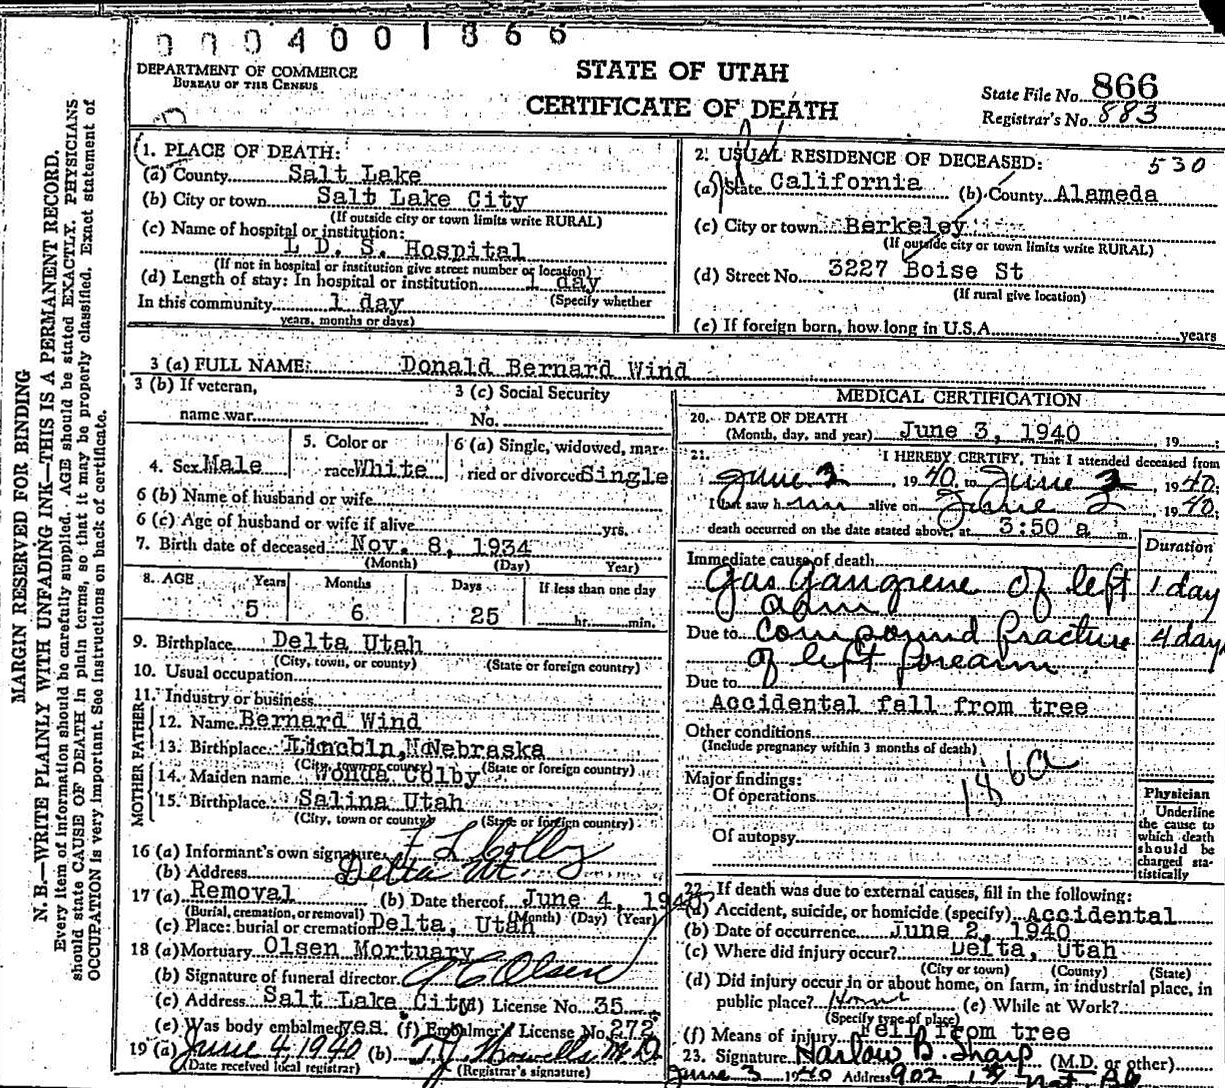 0004001866
DEPARTMENT OF COMMERCE
BUREAU OF THE CENSUS
STATE OF UTAH
CERTIFICATE OF DEATH
State File No. 866
Registrar's No. 883
MARGIN RESERVED FOR BINDING
N. B.—WRITE PLAINLY WITH UNFADING INK—THIS IS A PERMANENT RECORD.
Every item of information should be carefully supplied. AGE should be stated EXACTLY. PHYSICIANS
should state CAUSE OF DEATH in plain terms, so that it may be properly classified. Exact statement of
OCCUPATION is very important. See instructions on back of certificate.
1. PLACE OF DEATH:
(a) County Salt Lake
(b) City or town Salt Lake City
(If outside city or town limits write RURAL)
(c) Name of hospital or institution:
L D. S. Hospital
(If not in hospital or institution give street number or location)
(d) Length of stay: In hospital or institution 1 day
In this community 1 day (Specify whether
years, months or days)
2. USUAL RESIDENCE OF DECEASED: 530
(a) State California (b) County Alameda
(c) City or town Berkeley
(If outside city or town limits write RURAL)
(d) Street No. 3227 Boise St
(If rural give location)
(e) If foreign born, how long in U.S.A. years
3 (a) FULL NAME: Donald Bernard Wind
3 (b) If veteran,
name war
3 (c) Social Security
No.
4. Sex Male
5. Color or
race White
6 (a) Single, widowed, mar-
ried or divorced Single
6 (b) Name of husband or wife
6 (c) Age of husband or wife if alive yrs.
7. Birth date of deceased Nov. 8, 1934
(Month) (Day) Year)
8. AGE Years Months Days If less than one day
5 6 25 hr. min.
9. Birthplace Delta Utah
(City, town, or county) (State or foreign country)
10. Usual occupation
11. Industry or business
FATHER
12. Name Bernard Wind
13. Birthplace Lincoln, Nebraska
(City, town or county) (State or foreign country)
MOTHER
14. Maiden name Wonda Colby
15. Birthplace Salina Utah
(City, town or county) (State or foreign country)
16 (a) Informant's own signature F L Colby
(b) Address Delta Ut.
17 (a) Removal (b) Date thereof June 4, 1940
(Burial, cremation, or removal) (Month) (Day) (Year)
(c) Place: burial or cremation Delta, Utah
18 (a) Mortuary Olsen Mortuary
(b) Signature of funeral director Olsen
(c) Address Salt Lake City (d) License No. 35
(e) Was body embalmed yes. (f) Embalmer's License No. 272
19 (a) June 4, 1940 (b) M.D.
(Date received local registrar) (Registrar's signature)
MEDICAL CERTIFICATION
20. DATE OF DEATH
(Month, day, and year) June 3, 1940, 19
21. I HEREBY CERTIFY, That I attended deceased from
June 2, 1940, to June 2, 1940;
I last saw him alive on June 2, 1940;
death occurred on the date stated above, at 3:50 a m.
Duration
Immediate cause of death
Gas Gangrene of left 1 day
arm
Due to Compound Fracture 4 day
of left forearm
Due to
Accidental fall from tree
Other conditions
(Include pregnancy within 3 months of death)
186a
Major findings:
Of operations
Of autopsy
Physician
Underline
the cause to
which death
should be
charged sta-
tistically
22. If death was due to external causes, fill in the following:
(a) Accident, suicide, or homicide (specify) Accidental
(b) Date of occurrence June 2, 1940
(c) Where did injury occur? Delta, Utah
(City or town) (County) (State)
(d) Did injury occur in or about home, on farm, in industrial place, in
public place? Home (e) While at Work?
(Specify type of place)
(f) Means of injury Fell from tree
23. Signature Harlow B. Sharp (M.D. or other)
June 3 1940 Address 902 1st Nat. Bk